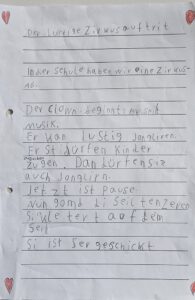 Der lustige Zirkusauftrit
In der Schule haben wir eine Zirkus-
Der Clown beginnt mit
musik.
Er kan lustig Jonglieren.
Er dürfen Kinder
zugen. Dan dürfen sie
auch Jonglirn.
Jetzt ist pause.
Nun komd Seiltenzeren
Si auf dem
Seil
Si ist Ser geschickt